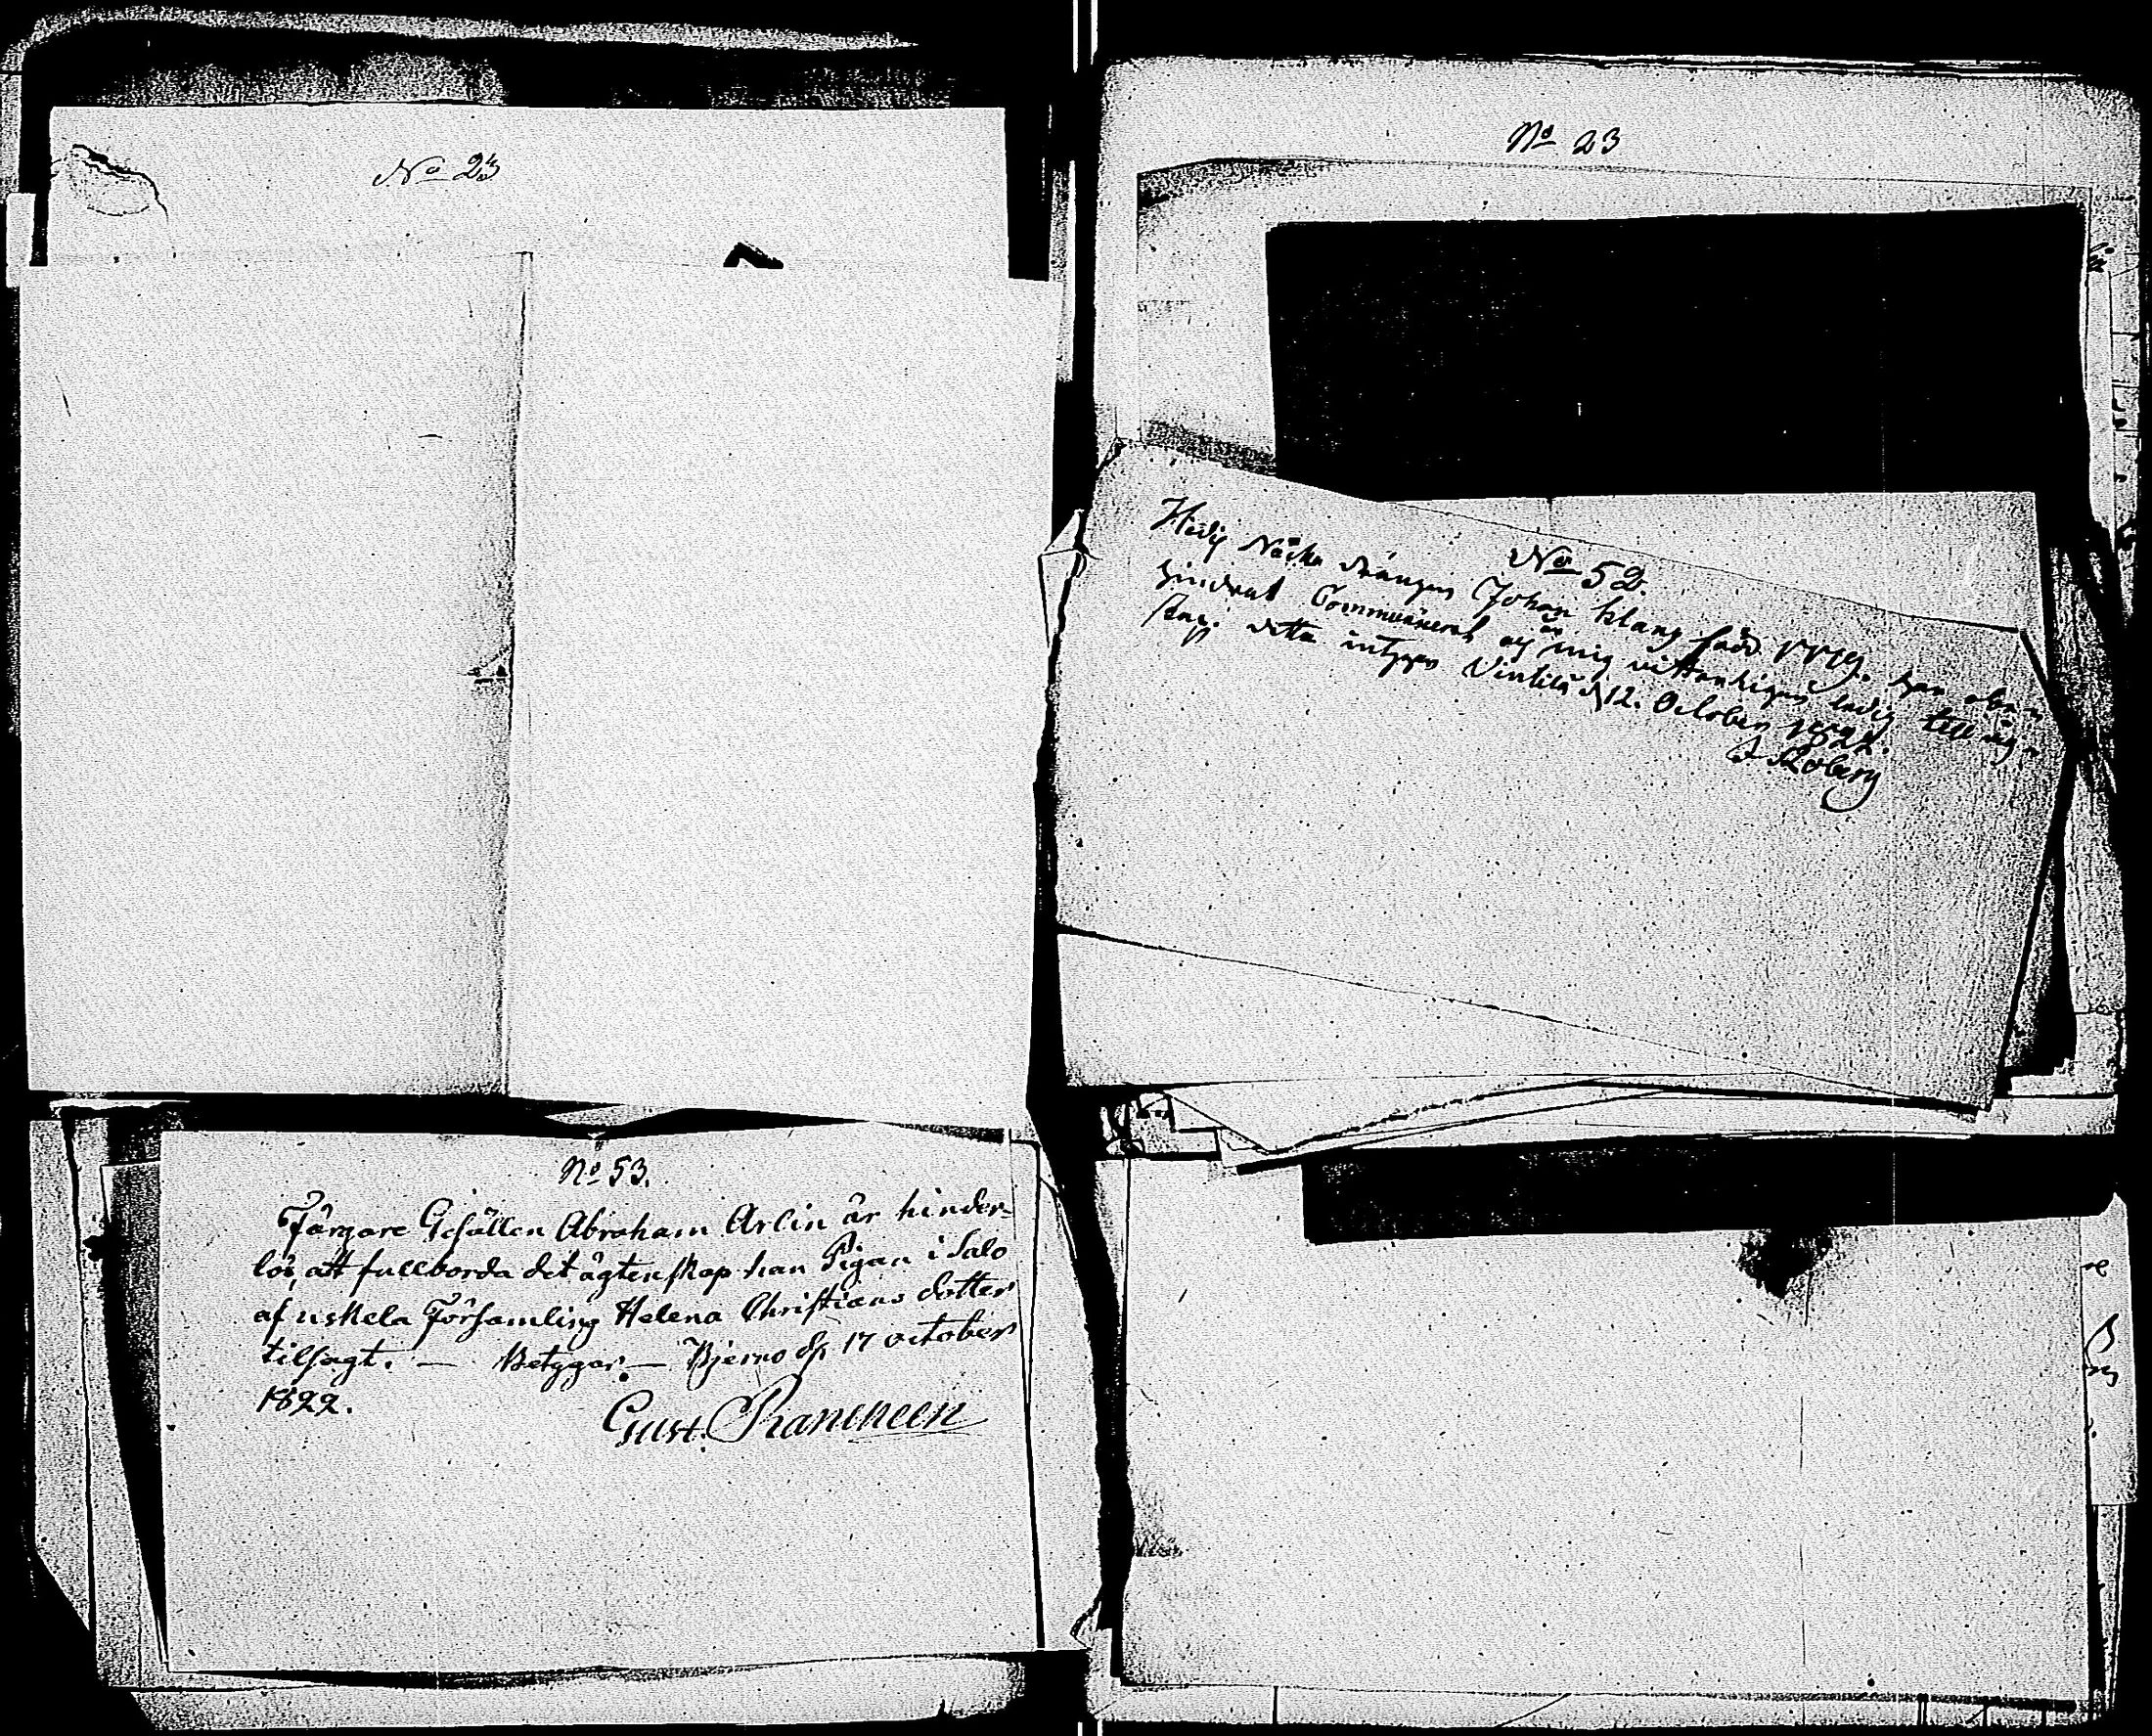 No 23
No 23
No 52.
Hedj Näcka drängen Johan Klang född 1779. har obe-
hindrat Communicerat och är mig vitterligen ledig till ägt
skap. detta intygas Vintilä d 12. October 1822.
No 53.
Färgare Gesällen Abraham Arlin är hinder-
lös, att fullborda det ägtenskap han Pigan i Salo
af uskela Församling Helena Christians dotter
tilsagt. — Betygar — Bjerno d. 17 october
1822.
Gust. Ranckeen